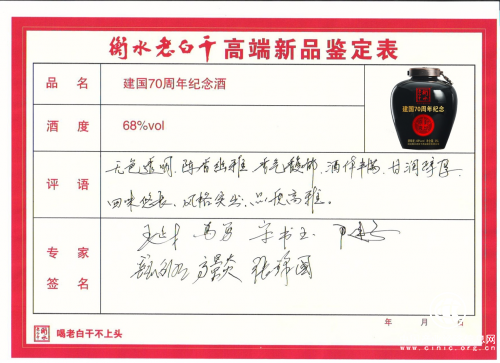 衡水老白干高端新品鉴定表
品名
建国70周年纪念酒
建国70周年纪念
酒度
68%vol
评语
无色透明、陈香幽雅、香气馥郁、酒体丰满、甘润醇厚、
回味悠长、风格突出、品质高雅。
专家签名
宋书玉
张锋国
年 月
衡水 喝老白干不上头
www.cihic.org.cn